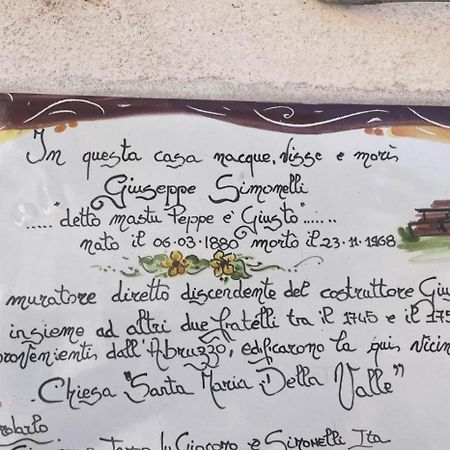 In questa casa nacque, visse e morì
Giuseppe Simonelli
....."detto mastu Peppe e' Giusto"......
nato il 06.03.1880 morto il 23.11.1968
muratore diretto discendente del costruttore Giu
insieme ad altri due fratelli tra il 1745 e il 175
provenienti dall'Abruzzo, edificarono la qui vicin
Chiesa "Santa Maria Della Valle"
Giacomo e Simonelli Ita